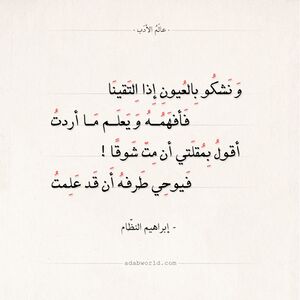 · عالَمُ الأدَب ·
وَنَشكُو بِالعُيونِ إِذا اِلتَقينَا
فَأفهَمُـهُ وَيَعلَـم مَـا أردتُ
أقولُ بِمُقلَتي أن مِتّ شَوقًا !
فَيوحي طَرفهُ أَن قَد عَلِمتُ
- إبراهيم النظّام
adabworld.com